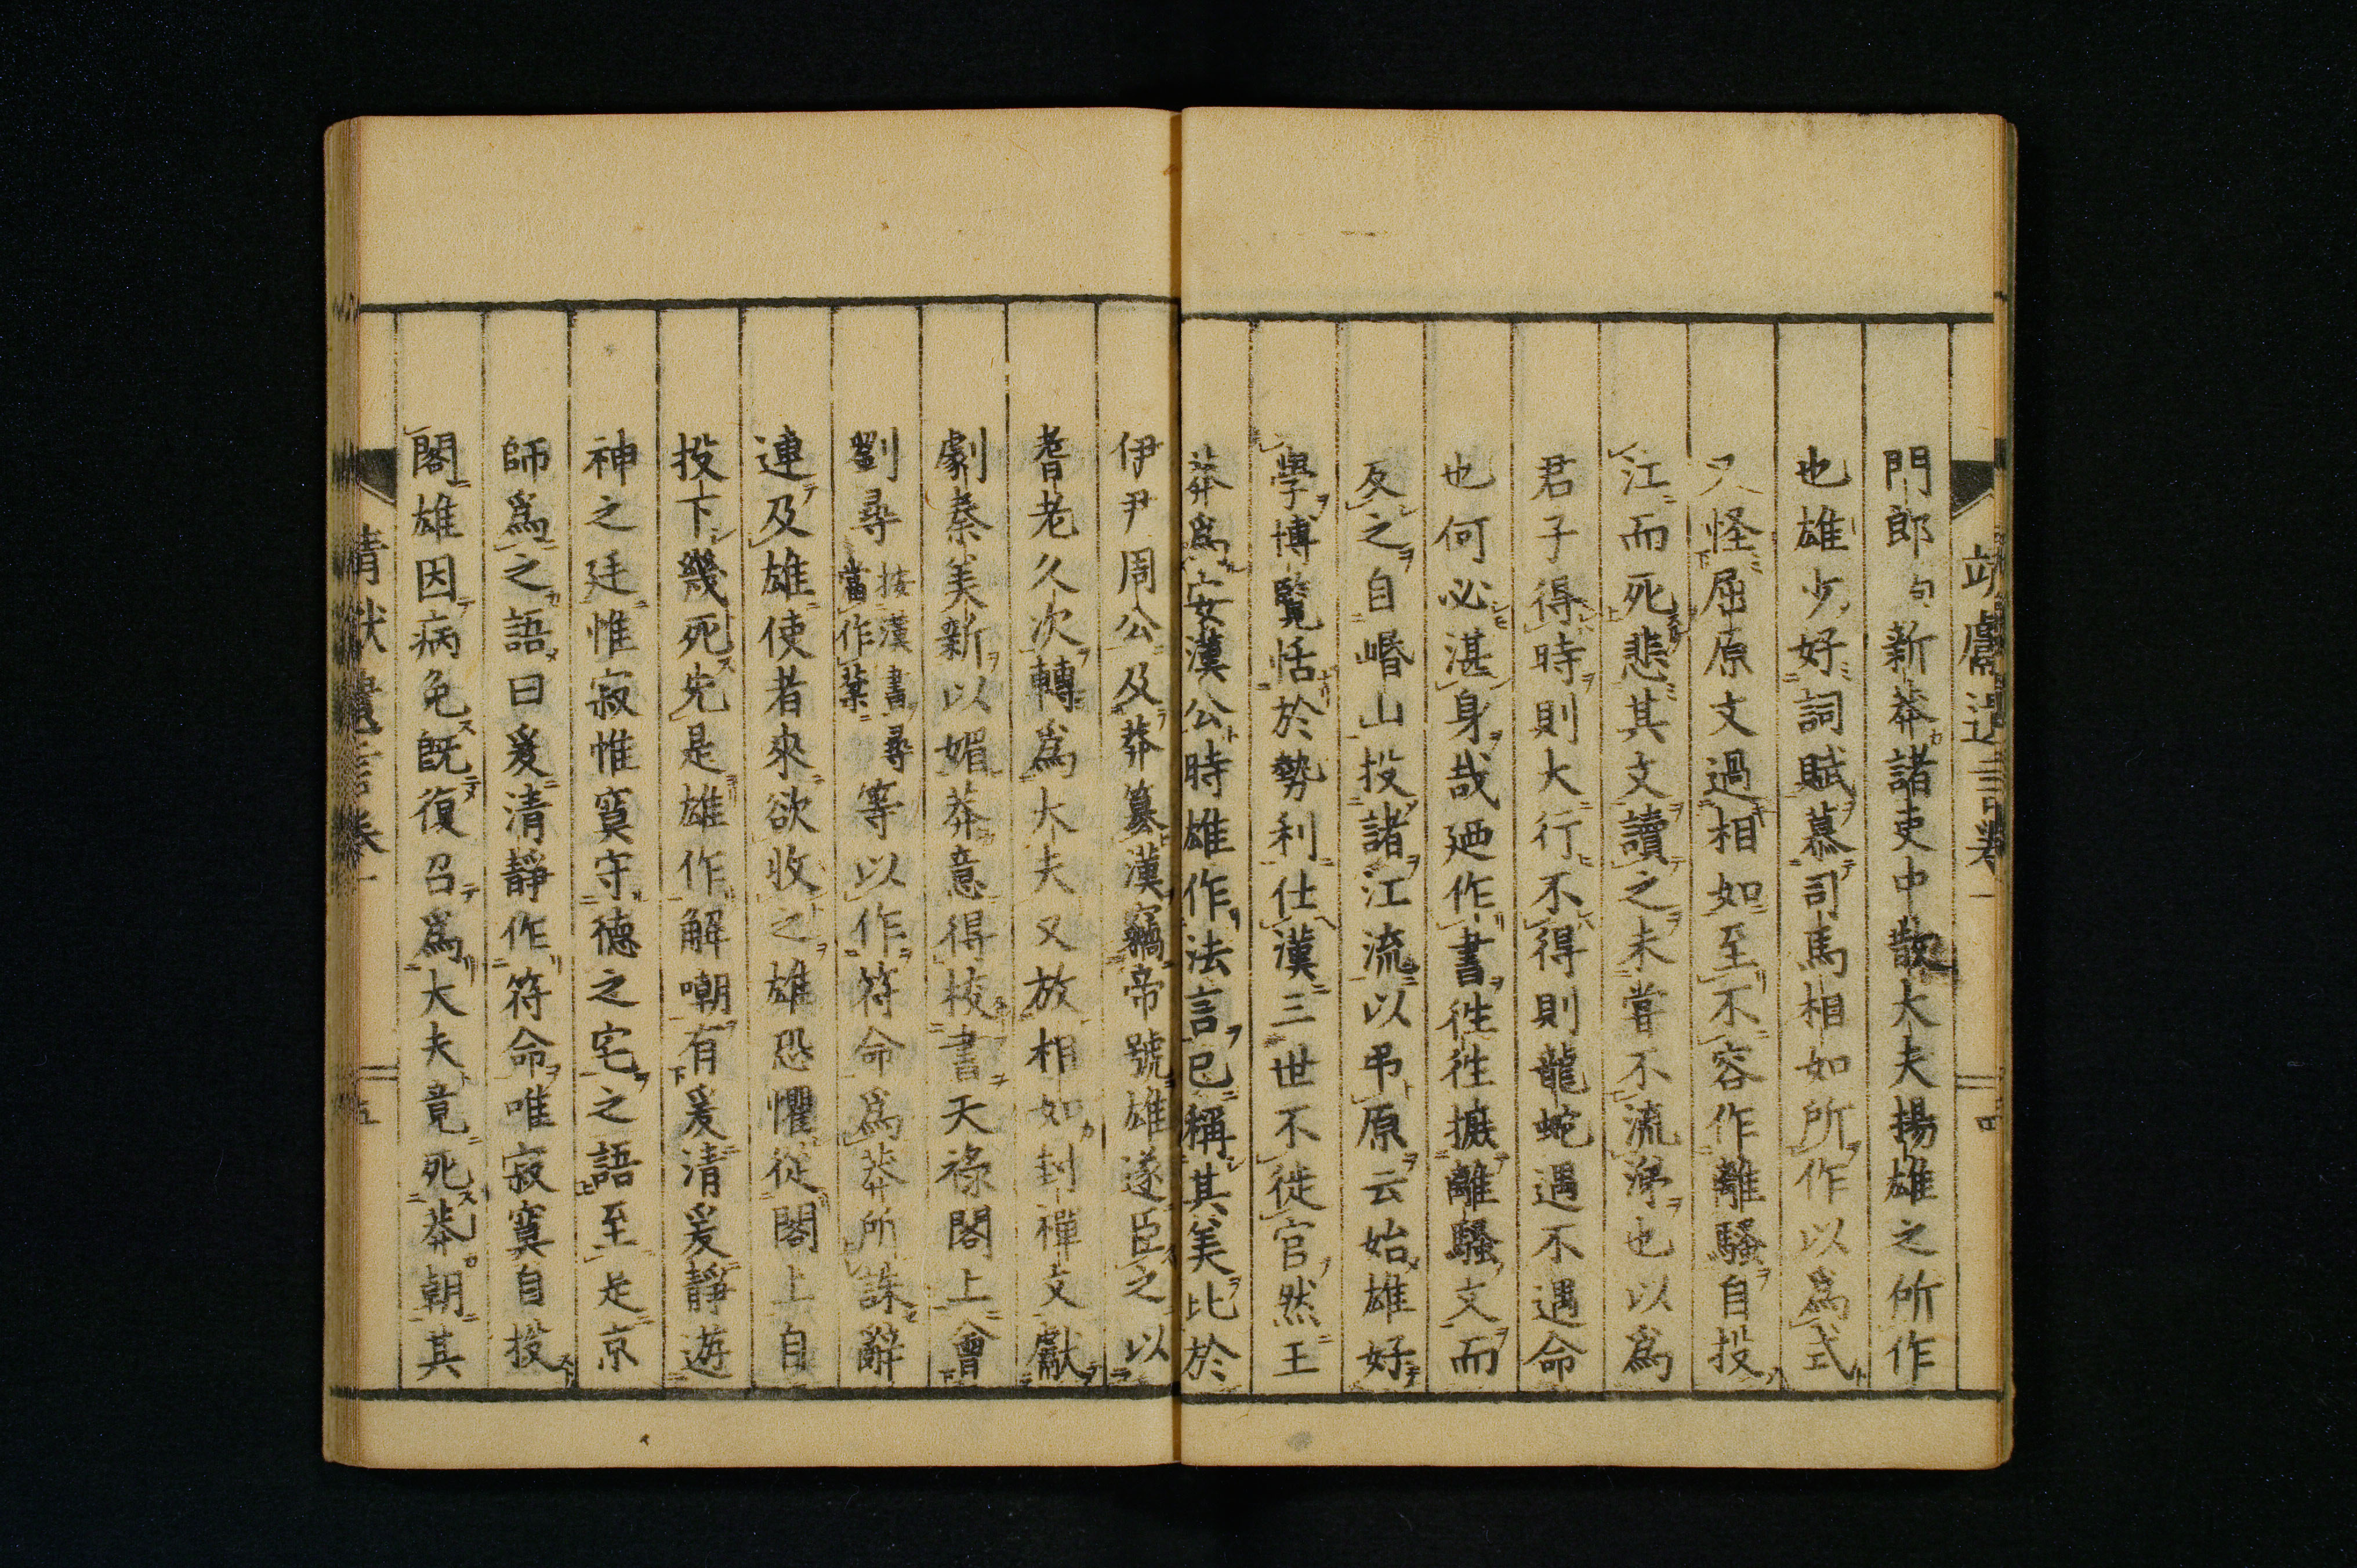 靖獻遺言卷一
四
門郎句新莽諸吏中散大夫揚雄之所作
也雄少好詞賦慕司馬相如所作以爲式
又怪屈原文過相如至不容作離騷自投
江而死悲其文讀之未嘗不流涕也以爲
君子得時則大行不得則龍蛇遇不遇命
也何必湛身哉廼作書往往摭離騷文而
反之自㟭山投諸江流以弔原云始雄好
學博覽恬於勢利仕漢三世不徙官然王
莽爲安漢公時雄作法言已稱其美比於
伊尹周公及莽篡漢竊帝號雄遂臣之以
耆老久次轉爲大夫又放相如封禪文獻
劇秦美新以媚莽意得校書天祿閣上會
劉尋按漢書尋當作棻等以作符命爲莽所誅辭
連及雄使者來欲收之雄恐懼從閣上自
投下幾死先是雄作解嘲有爰清爰靜遊
神之廷惟寂惟寞守德之宅之語至是京
師爲之語曰爰清靜作符命唯寂寞自投
閣雄因病免既復召爲大夫竟死莽朝其
靖獻遺言卷一
五